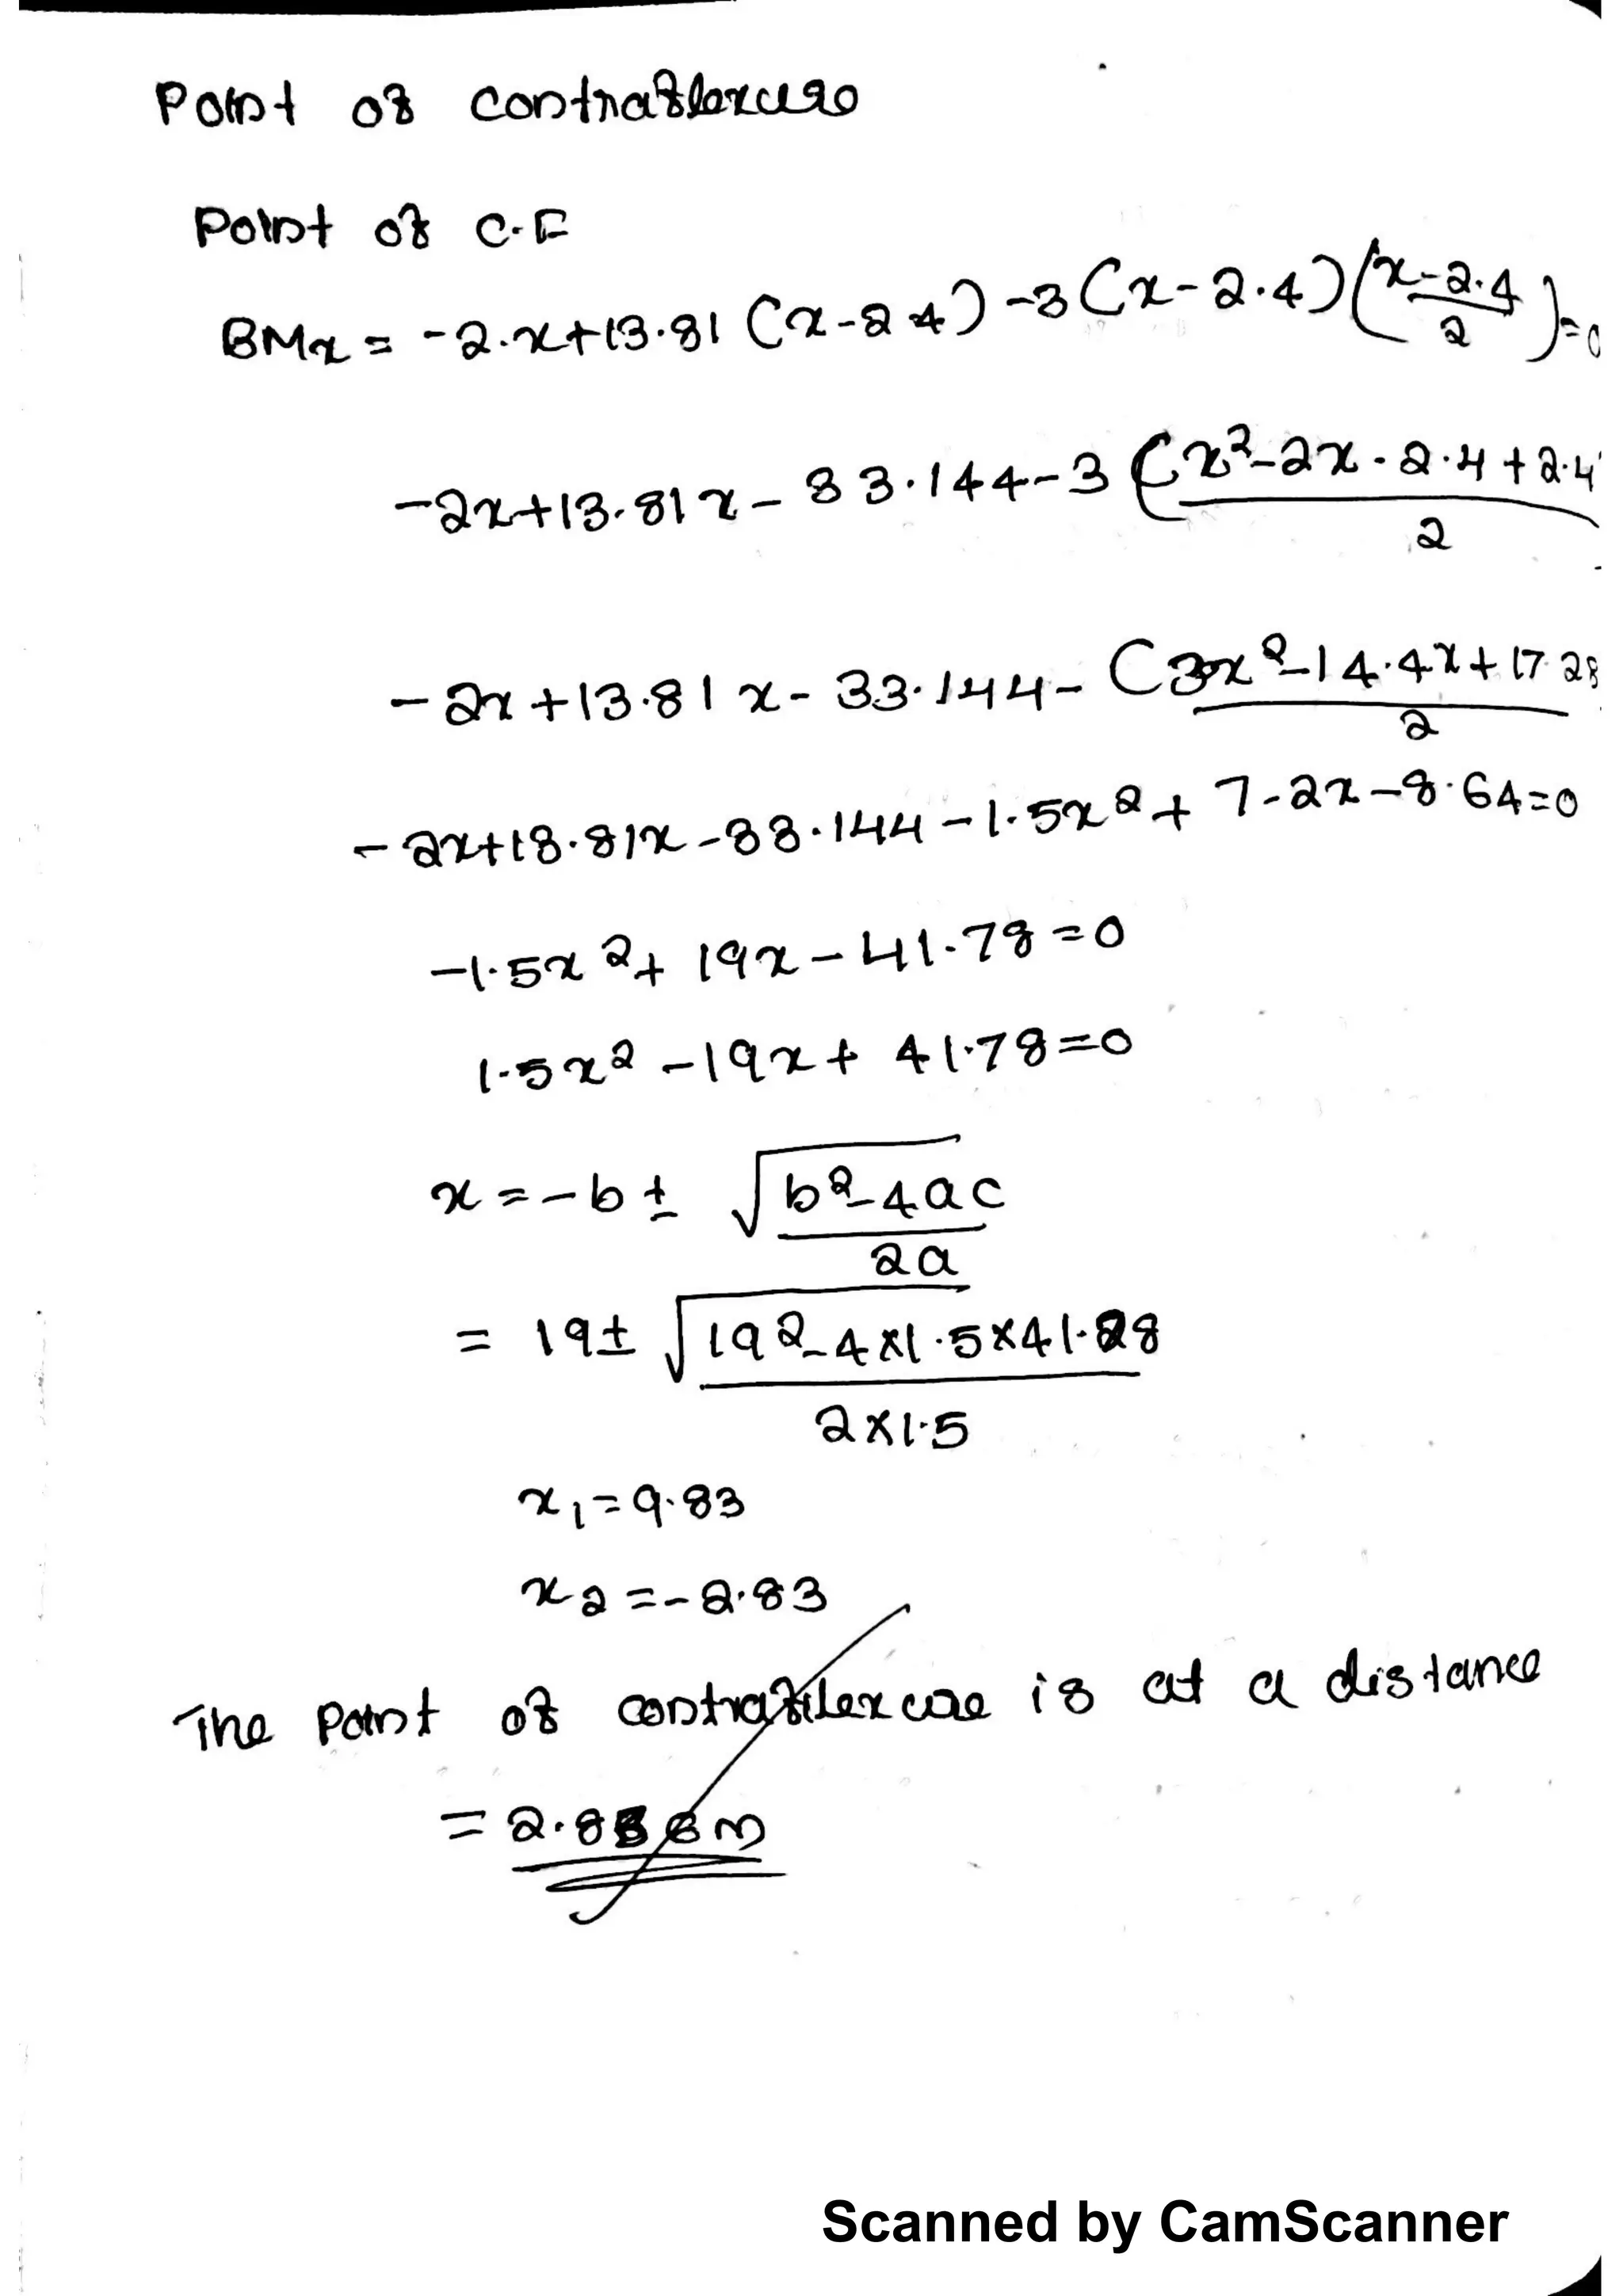 Point of contraflexure
Point of C.F
BMx = -2.x+13.81 (x-2.4) -3(x-2.4)(x-2.4/2)=0
-2x+13.81x-33.144-3(x²-2x.2.4+2.4²/2
-2x+13.81x-33.144-(3x²-14.4x+17.28/2
-2x+13.81x-33.144-1.5x²+7.2x-8.64=0
-1.5x²+19x-41.78=0
1.5x²-19x+41.78=0
x=-b±√b²-4ac/2a
= 19±√19²-4×1.5×41.78/2×1.5
x1=9.83
x2=-2.83
The point of contraflexure is at a distance
= 2.83m
Scanned by CamScanner